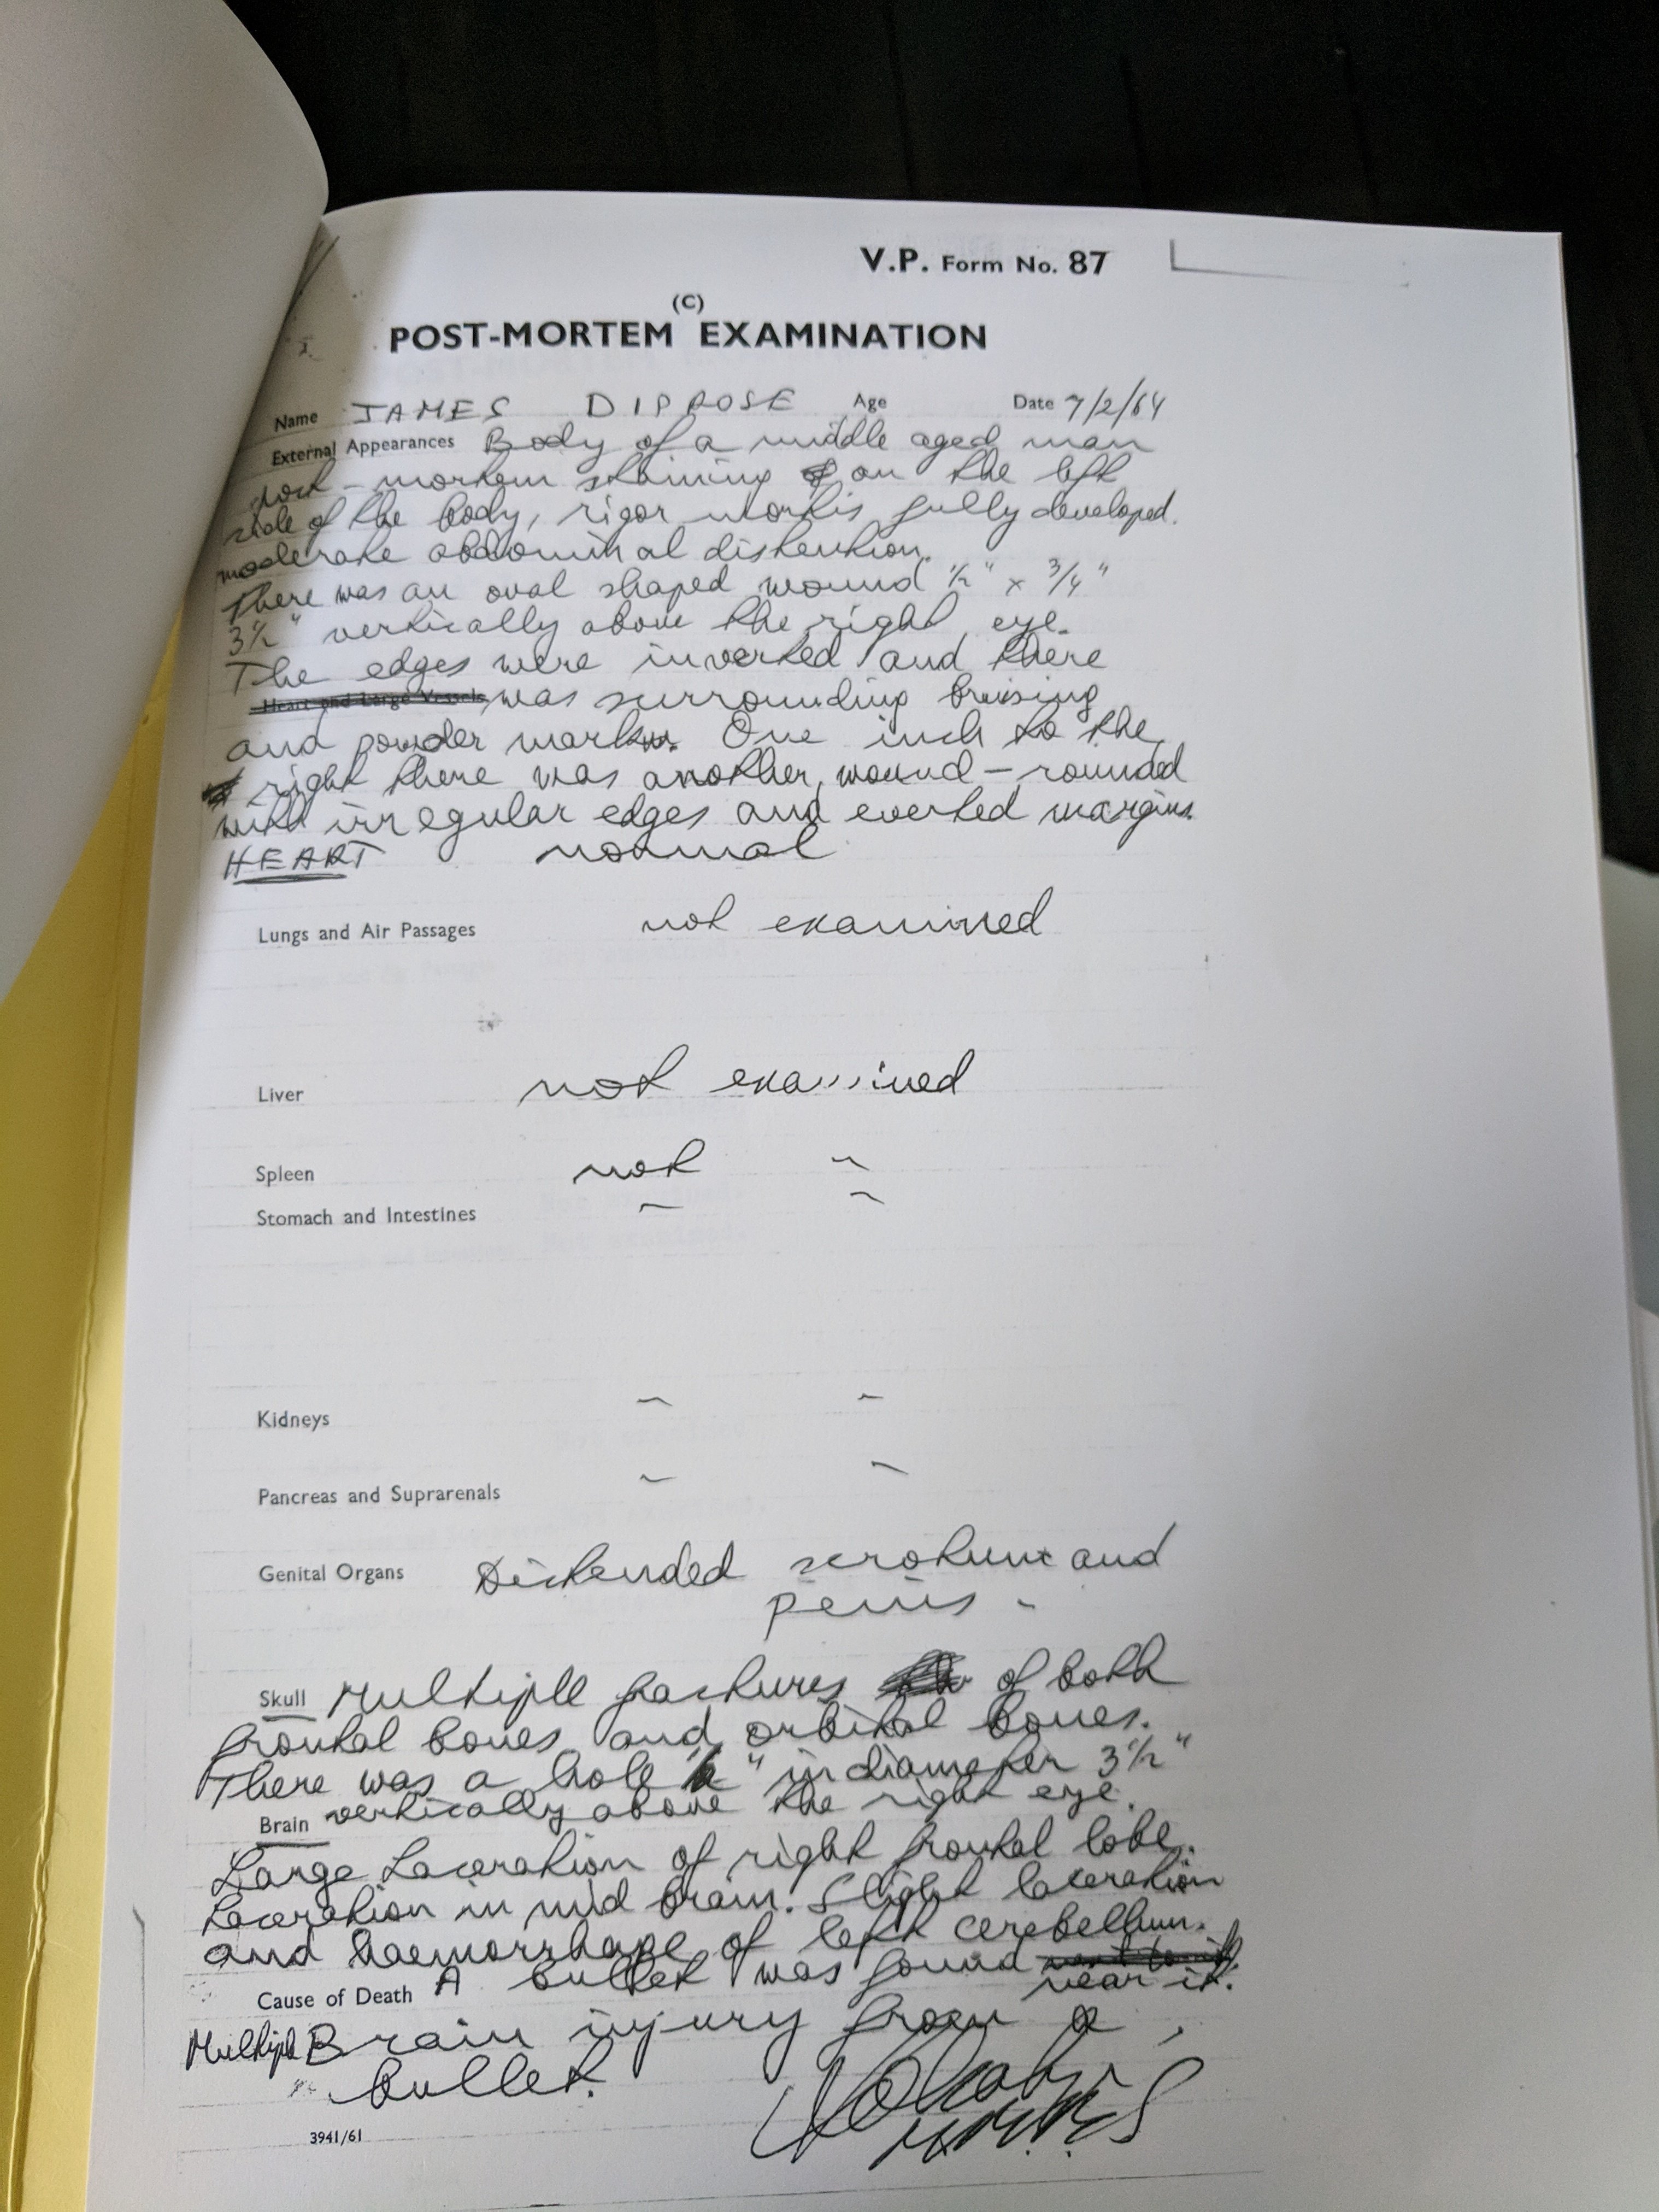 V.P. Form No. 87
(C)
POST-MORTEM EXAMINATION
Name JAMES DIPROSE Age Date 7/2/64
External Appearances Body of a middle aged man
post-mortem staining on the left
side of the body, rigor mortis fully developed.
moderate abdominal distention.
There was an oval shaped wound 1/2" x 3/4"
3 1/2" vertically above the right eye.
The edges were inverted and there
Heart and Large Vessels was surrounding bruising
and powder marks. One inch to the
right there was another wound - rounded
with irregular edges and everted margins.
HEART normal
Lungs and Air Passages not examined
Liver not examined
Spleen not "
Stomach and Intestines " "
Kidneys " "
Pancreas and Suprarenals " "
Genital Organs Distended scrotum and
penis -
Skull Multiple fractures of both
frontal bones and orbital bones.
There was a hole " in diameter 3 1/2"
Brain vertically above the right eye.
Large Laceration of right frontal lobe.
Laceration in mid brain. Slight laceration
and haemorrhage of left cerebellum.
Cause of Death A bullet was found near it.
Multiple Brain injury from a
bullet.
3941/61